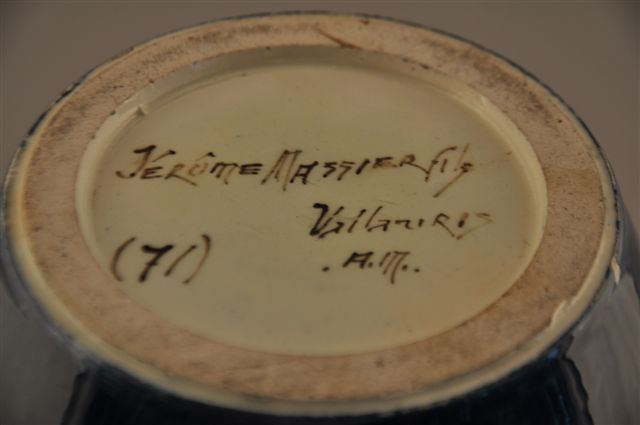 JÉRÔME MASSIER fils
Vallauris
(71)
. A.M..